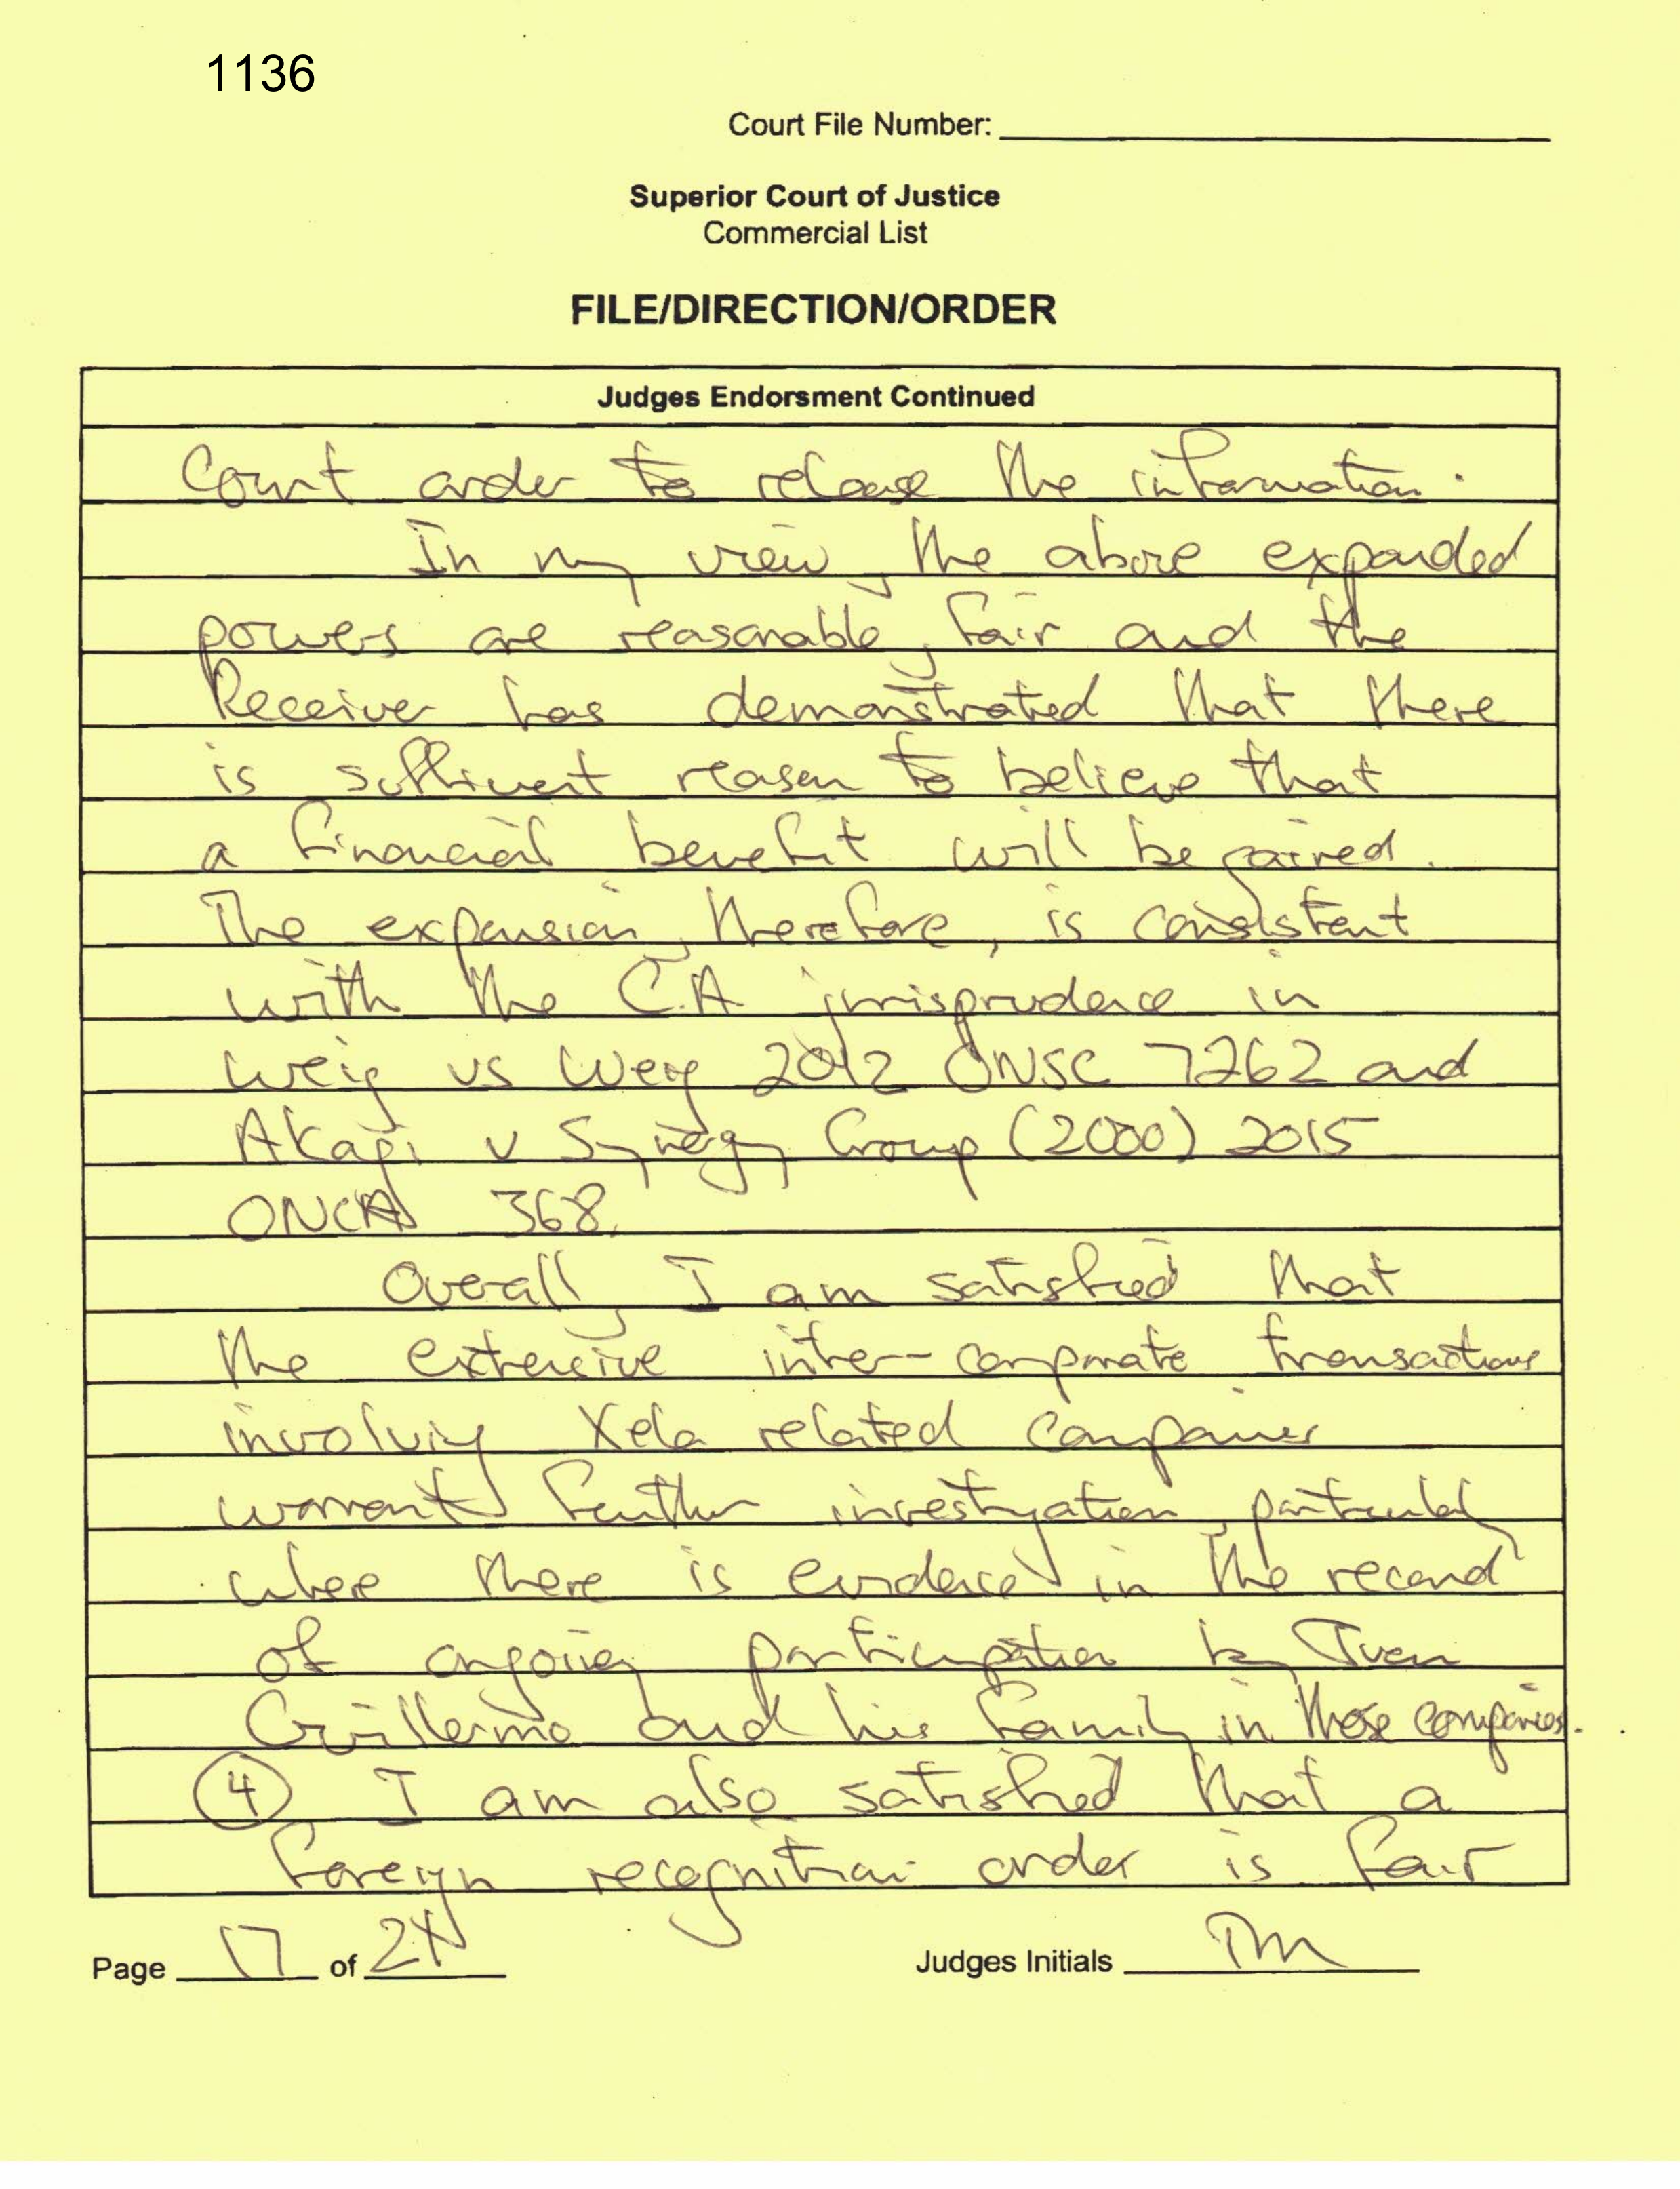 1136
Court File Number:
Superior Court of Justice
Commercial List
FILE/DIRECTION/ORDER
Judges Endorsment Continued
Court order to release the information.
In my view, the above expanded
powers are reasonable, fair and the
Receiver has demonstrated that there
is sufficient reason to believe that
a financial benefit will be gained.
The expansion, therefore, is consistent
with the C.A jurisprudence in
Weig vs Weig 2012 ONSC 7262 and
Akagi v Synergy Group (2000) 2015
ONCA 368.
Overall, I am satisfied that
the extensive inter-corporate transactions
involving Xela related companies
warrant further investigation, particularly
where there is evidence in the record
of ongoing participation by Juan
Guillermo and his family in those companies.
4 I am also satisfied that a
foreign recognition order is fair
Page 17 of 24
Judges Initials